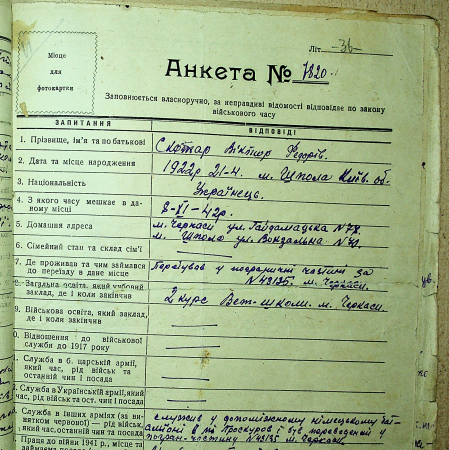 Місце
для
фотокартки
Літ. -36-
Анкета № 7820.
Заповнюється власноручно, за неправдиві відомості відповідає по закону
військового часу
ЗАПИТАННЯ ВІДПОВІДІ
1. Прізвище, ім'я та по батькові Скотар Віктор Федорів.
2. Дата та місце народження 1922р 21-4. м. Шпола Київ. об.
3. Національність Українець.
4. З якого часу мешкає в даному місці 8-XI-42р.
5. Домашня адреса м. Черкаси ул. Гайдамацька №78.
м. Шпола ул. Вокзальна
6. Сімейний стан та склад сім'ї
7. Де проживав та чим займався
до переїзду в дане місце за
№43135. м. Черкаси.
Загальна освіта, який учбовий
заклад, де і коли закінчив 2 курс Вет-школи. м. Черкаси.
9. Військова освіта, який заклад,
де і коли закінчив
0. Відношення до військової
служби до 1917 року
1. Служба в б. царській армії,
який час, рід військ та
останній чин і посада
2. Служба в Українській армії, який
час, рід військ та ост. чин і посада
Служба в інших арміях (за винятком
червоної) — рід військ,
час, останній чин та посада служив у допоміжному німецькому
в м. Проскурів і був переведений у
погран-частину №43135 м. Черкаси.
Праця до війни 1941 р., місце та